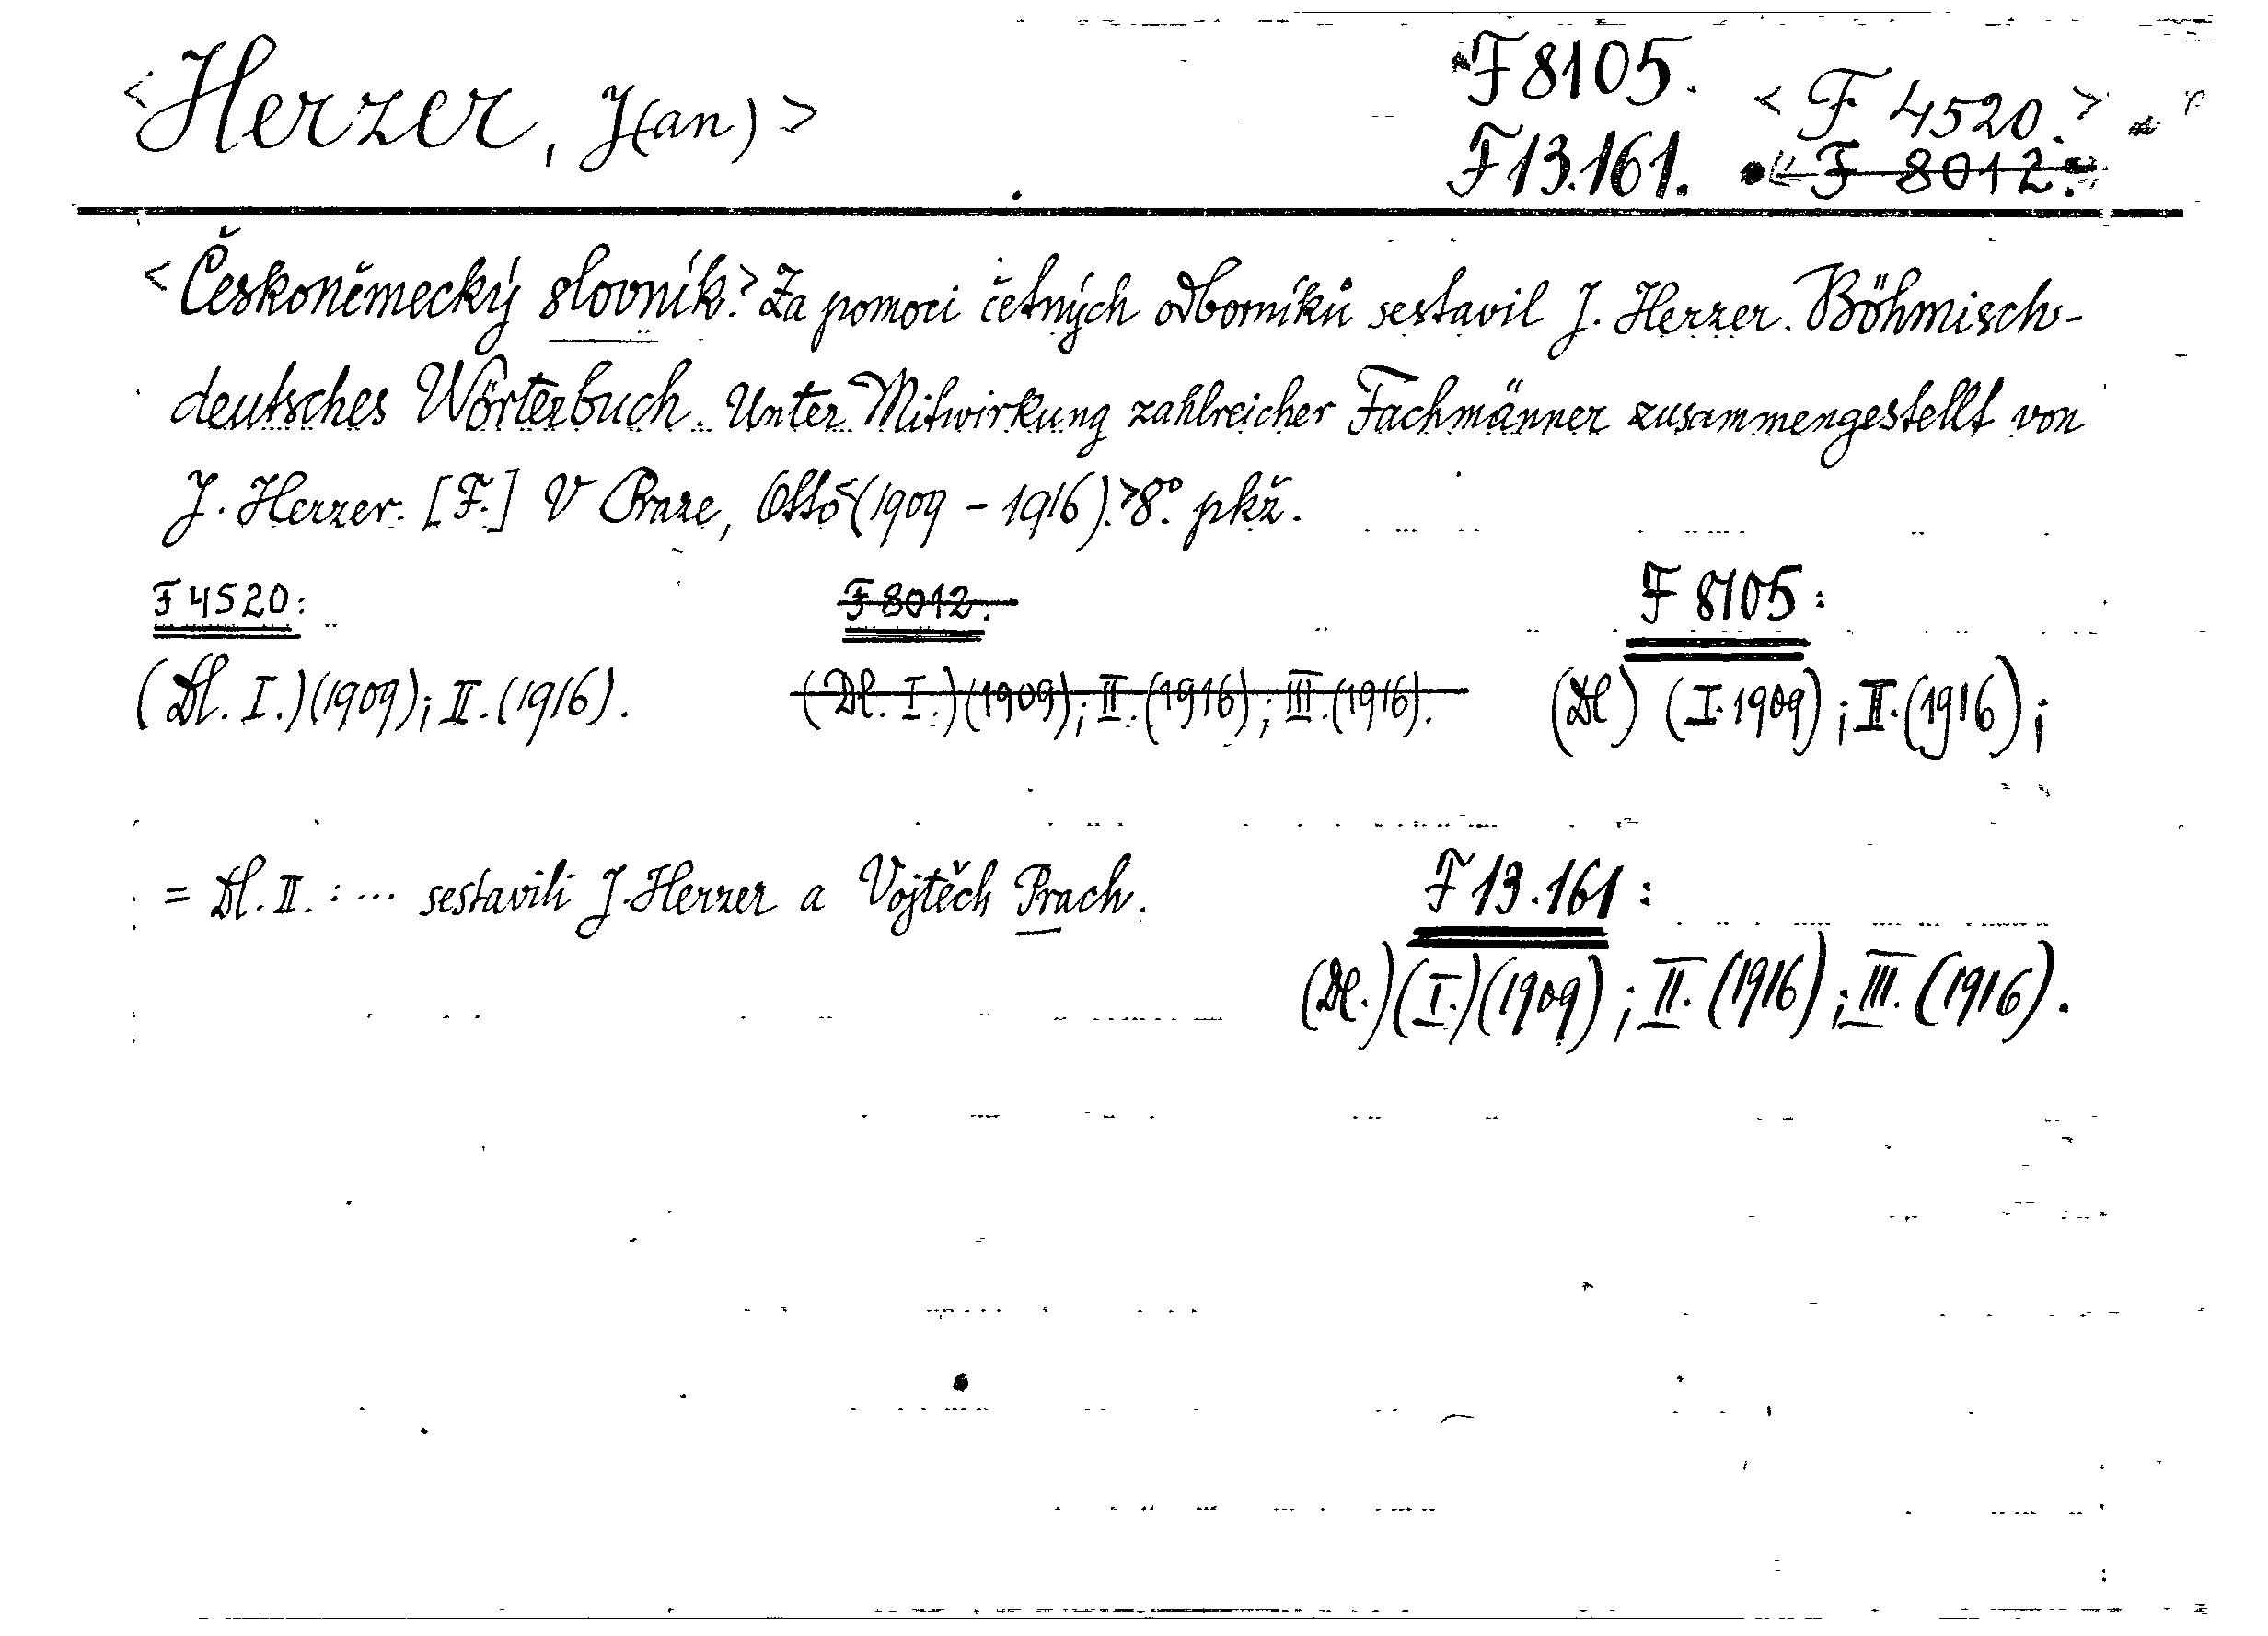 <Herzer, J(an)>
F 8105.
<F 4520.>
F 13.161.
<F 8012.>
<Českoněmecký slovník.> Za pomoci četných odborníků sestavil J. Herzer. Böhmisch-
deutsches Wörterbuch. Unter Mitwirkung zahlreicher Fachmänner zusammengestellt von
J. Herzer. [F.] V Praze, Otto <(1909 - 1916).> 8°. pkž.
F 4520:
F 8012:
F 8105:
(Dl. I.) (1909); II. (1916).
(Dl. I.) (1909); II. (1916); III. (1916).
(Dl) (I. 1909); II. (1916);
= Dl. II. : ... sestavili J. Herzer a Vojtěch Prach.
F 13.161:
(Dl.) (I.) (1909); II. (1916); III. (1916).